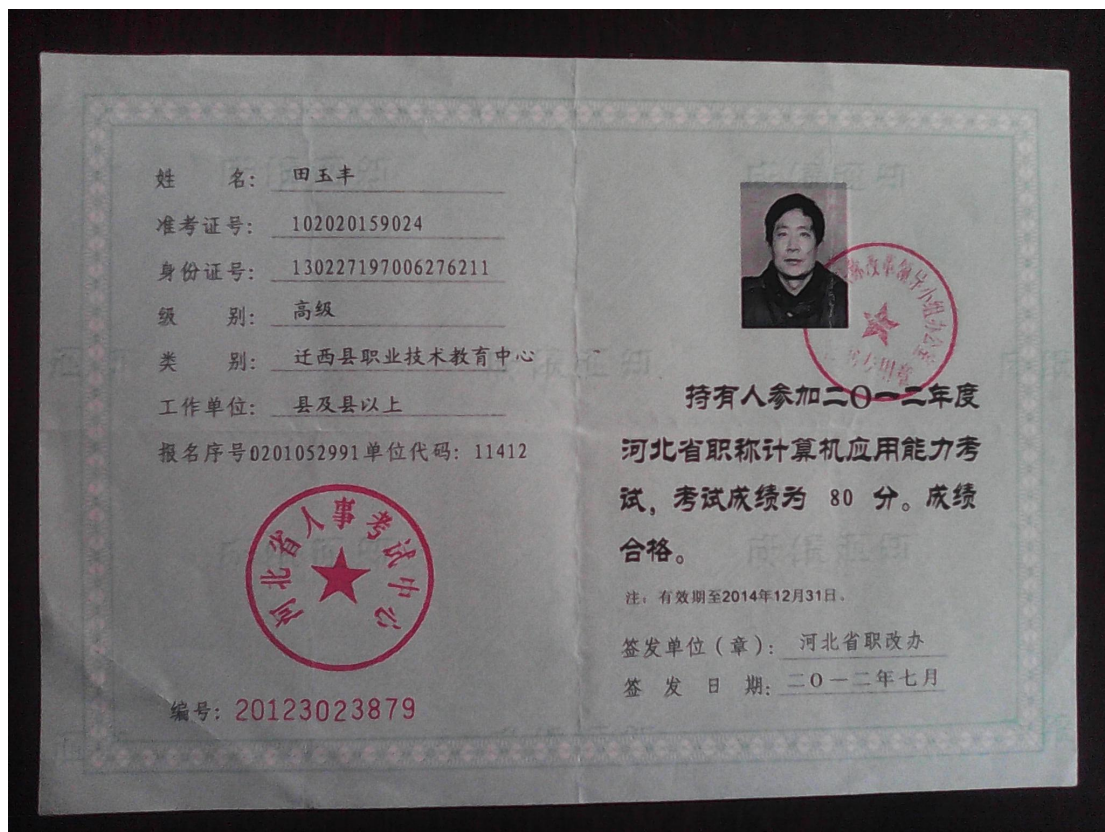 姓 名: 田玉丰
准考证号: 102020159024
身份证号: 130227197006276211
级 别: 高级
类 别: 迁西县职业技术教育中心
工作单位: 县及县以上
报名序号0201052991单位代码: 11412
河北省人事考试中心
编号: 20123023879
改革领导小组办公室
专用章
持有人参加二〇一二年度
河北省职称计算机应用能力考
试, 考试成绩为 80 分。成绩
合格。
注: 有效期至2014年12月31日。
签发单位(章): 河北省职改办
签 发 日 期: 二〇一二年七月